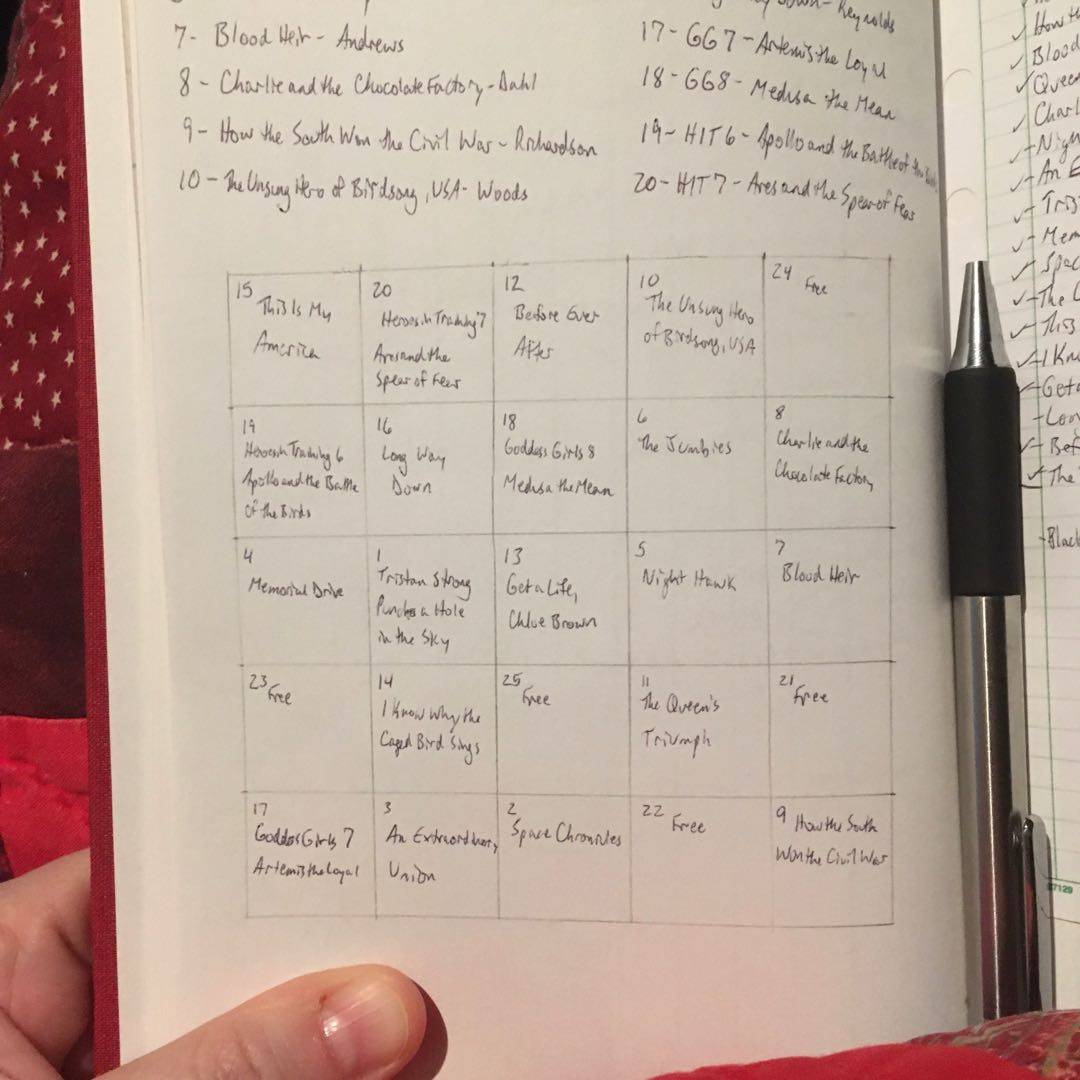 7 - Blood Heir - Andrews
8 - Charlie and the Chocolate Factory - Dahl
9 - How the South Won the Civil War - Richardson
10 - The Unsung Hero of Birdsong, USA - Woods
Down - Reynolds
17 - GG7 - Artemis the Loyal
18 - GG8 - Medusa the Mean
19 - HIT 6 - Apollo and the Battle of the
20 - HIT 7 - Ares and the Spear of Fear
15
This Is My
America
20
Heroes in Training 7
Ares and the
Spear of Fear
12
Before Ever
After
10
The Unsung Hero
of Birdsong, USA
24
Free
19
Heroes in Training 6
Apollo and the Battle
of the Birds
16
Long Way
Down
18
Goddess Girls 8
Medusa the Mean
6
The Jumbies
8
Charlie and the
Chocolate Factory
4
Memorial Drive
1
Tristan Strong
Punches a Hole
in the Sky
13
Get a Life,
Chloe Brown
5
Night Hawk
7
Blood Heir
23 Free
14
I Know Why the
Caged Bird Sings
25
Free
11
The Queen's
Triumph
21
Free
17
Goddess Girls 7
Artemis the Loyal
3
An Extraordinary
Union
2
Space Chronicles
22 Free
9 How the South
Won the Civil War
How th
Blood
Queen
Charl
Nigh
An E
Trist
Mem
Spac
The
This
I Kn
Get a
Lon
Bef
The
Black
87129